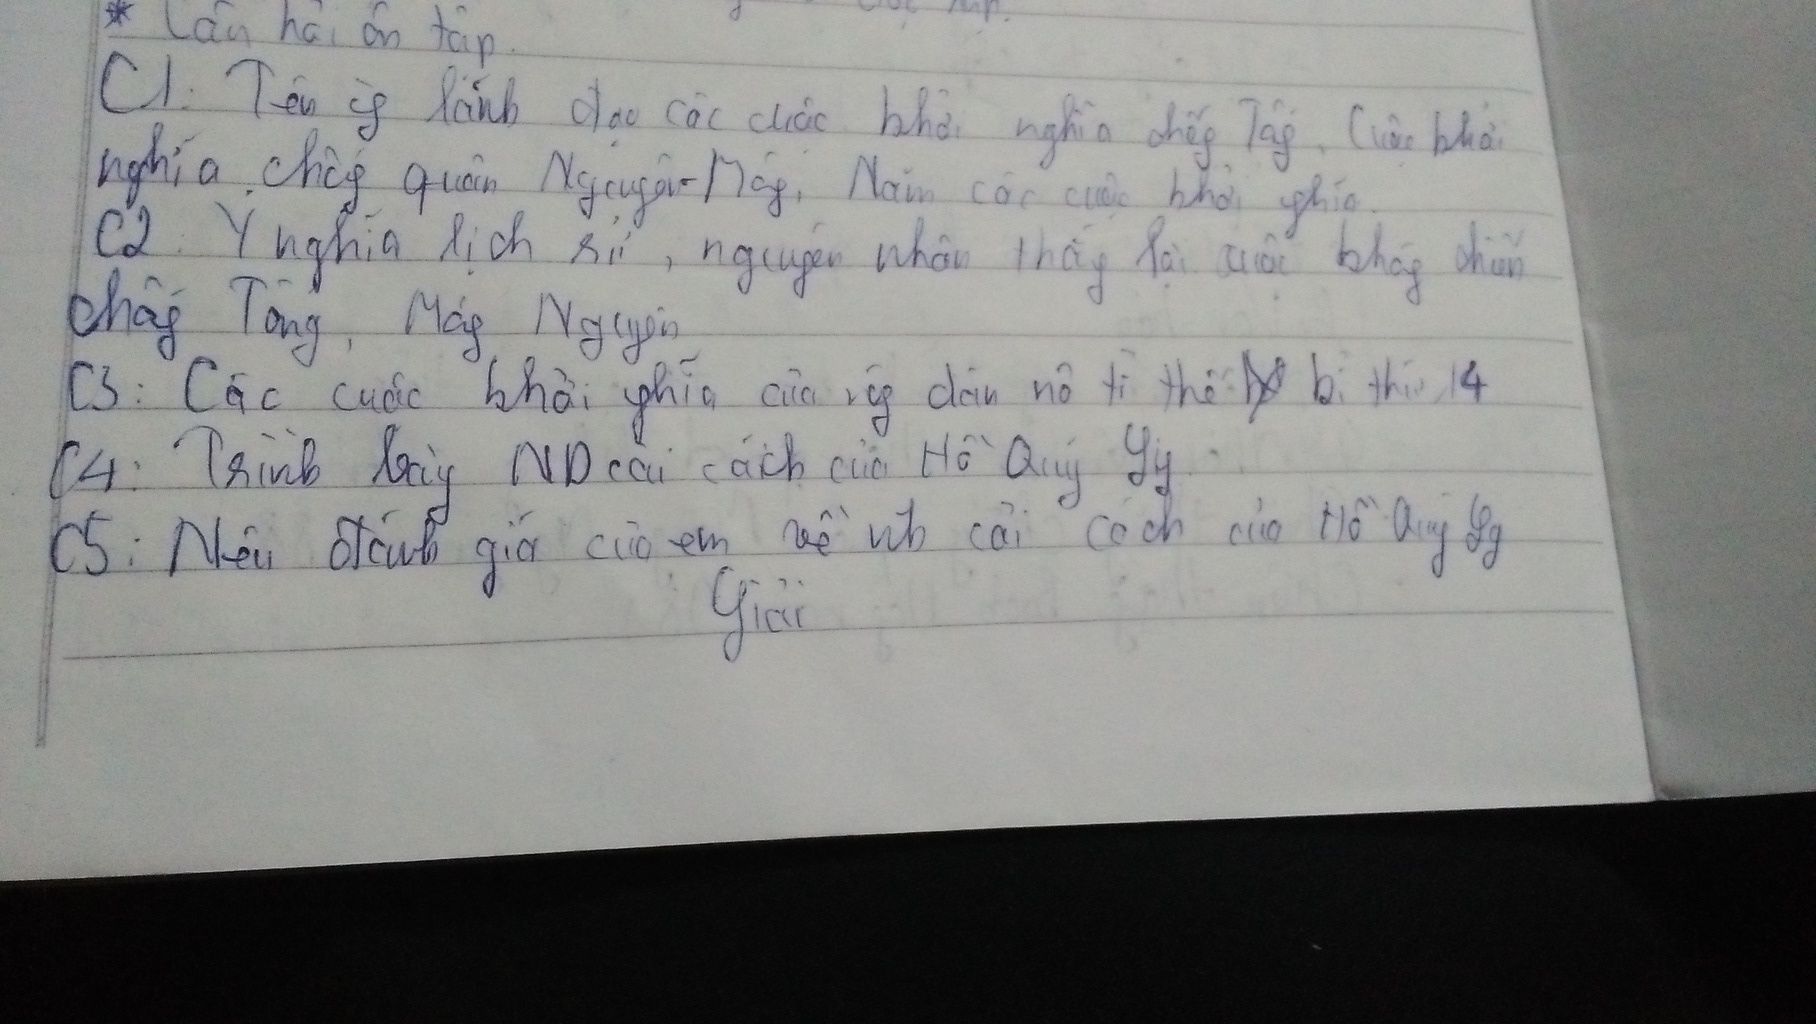 * Câu hỏi ôn tập.
C1: Tên ng lãnh đạo các cuộc khởi nghĩa chống Tống, Cuộc khởi
nghĩa chống quân Nguyên-Mông, Năm các cuộc khởi nghĩa.
C2: Ý nghĩa lịch sử, nguyên nhân thắng lợi cuộc kháng chiến
chống Tống, Mông Nguyên
C3: Các cuộc khởi nghĩa của nông dân nô tì thế kỷ thứ 14
C4: Trình bày ND cải cách của Hồ Quý Ly
C5: Nêu đánh giá của em về nh cải cách của Hồ Quý Ly
Giải